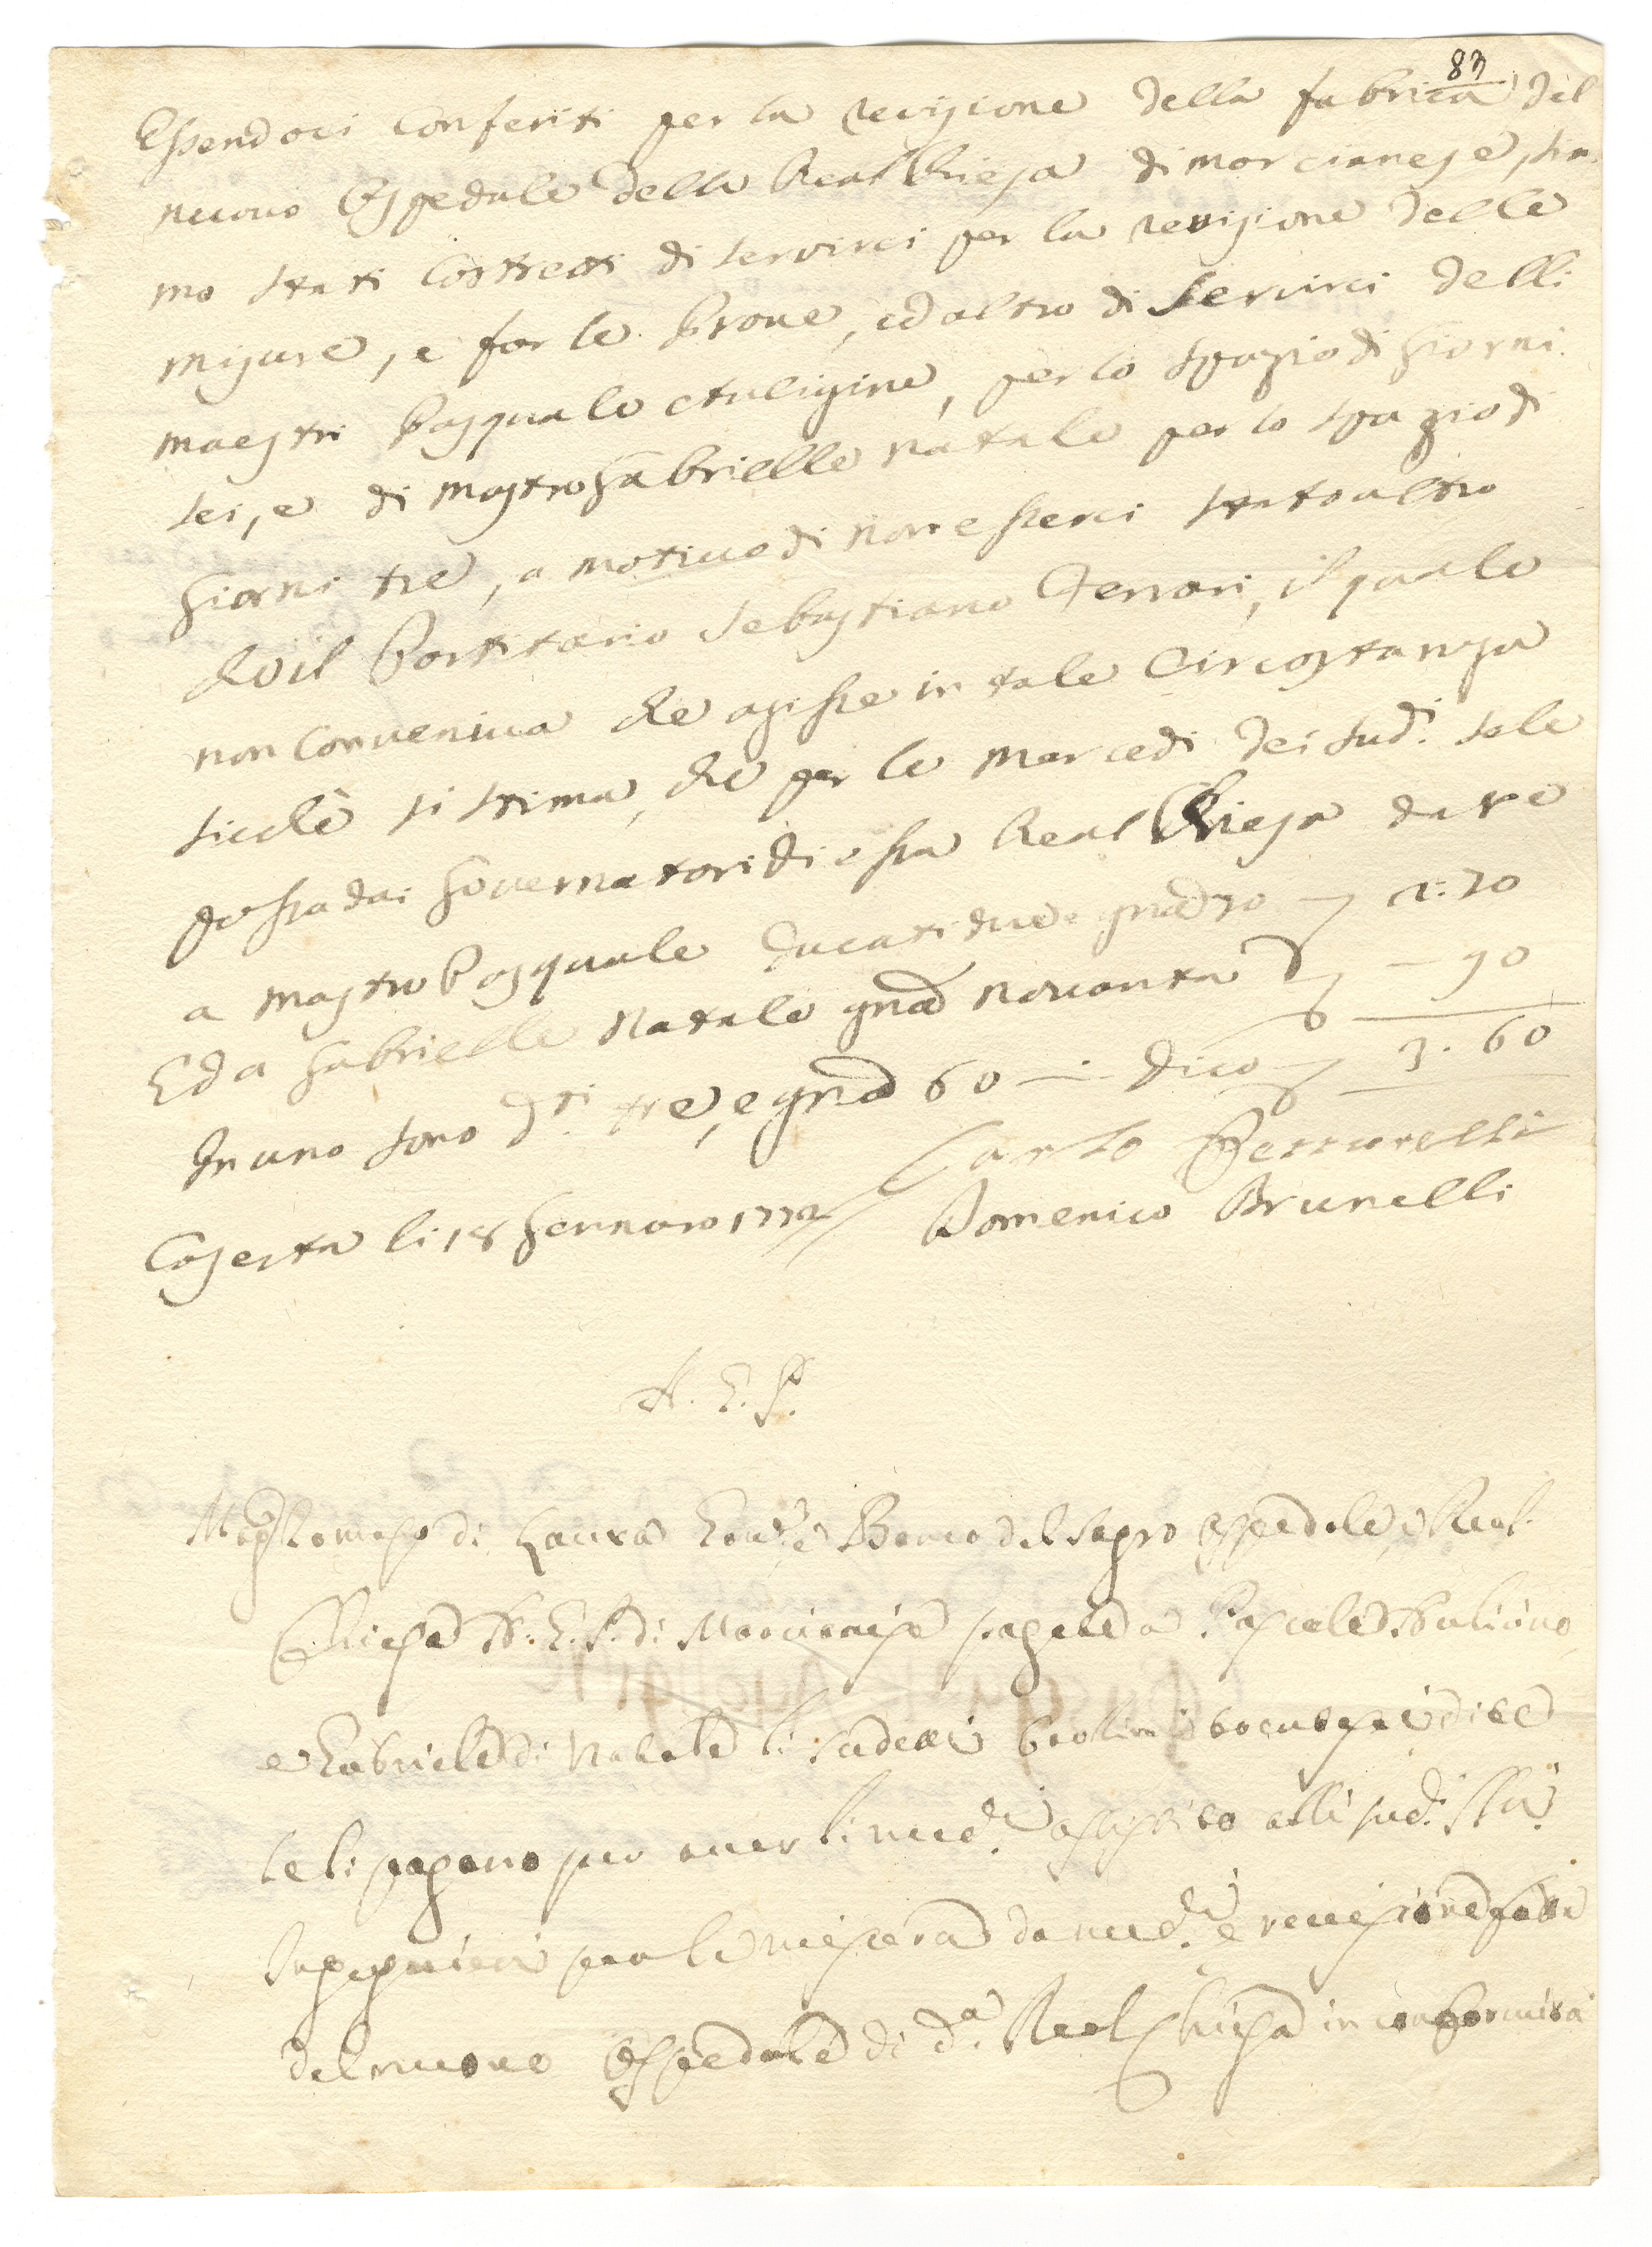 83
Essendoci conferiti per la revisione della fabrica del
nuovo Ospedale della Real Chiesa di Marcianese, sia-
mo stati costretti di servirci per la revisione delle
misure, e far le prove, ed altro di servirci delli
maestri Pasquale Auligine, per lo spazio di giorni
sei, e di mastro Gabrielle Natale per lo spazio di
giorni tre, a motivo di non esserci stato altro
che il Partitario Sebastiano Ferrari, il quale
non conveniva che agisse in tale circostanza
sicchè si stima, che per le mercedi dei sud.i sole
possa dai Governatori di essa Real Chiesa dare
a mastro Pasquale ducati due e grana 70 — 2:70
Ed a Gabrielle Natale grana novanta — 90
In uno sono d.ti tre, e grana 60 — dico 3.60
Caserta li 18 Gennaro 1772 Carlo
Domenico Brunelli
A. G. P.
di Laura Banco del Sagro Ospedale, e Real
Chiesa A. G. P. di Marcianise pagate a Pascale Auligino
e Gabriele di Natale li sudetti
le li pagano per aver li med.i assistito alli sud.i
Ingegnieri per la misura da med.i e revisione fatta
del nuovo Ospedale di d.a Real Chiesa in conformità